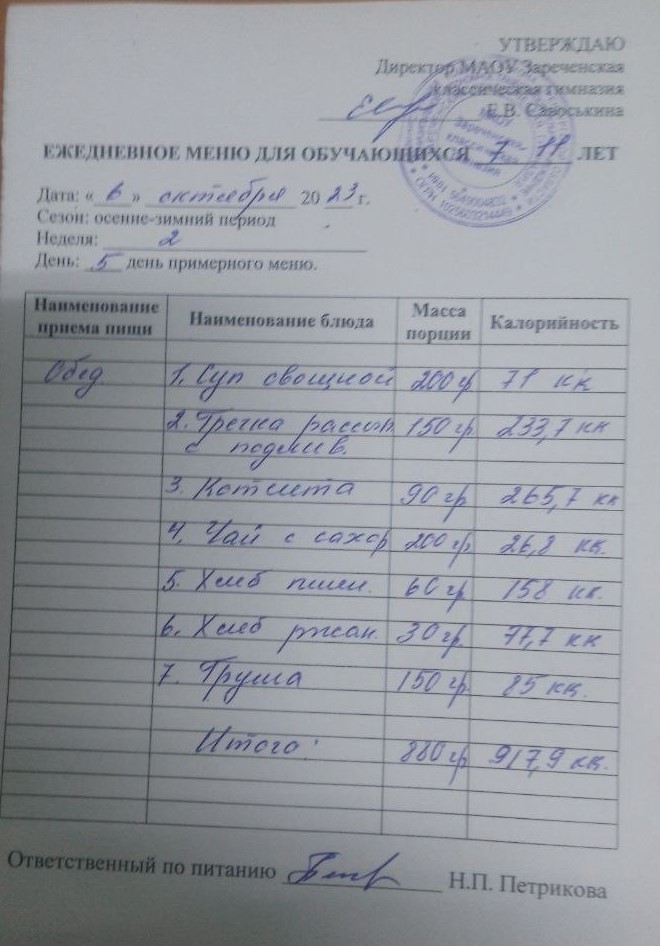 УТВЕРЖДАЮ
Директор МАОУ Зареченская
классическая гимназия
Е.В. Савоськина
ЕЖЕДНЕВНОЕ МЕНЮ ДЛЯ ОБУЧАЮЩИХСЯ 7 11 ЛЕТ
Дата: « 6 » октября 20 23 г.
Сезон: осенне-зимний период
Неделя: 2
День: 5 день примерного меню.
Наименование приема пищи Наименование блюда Масса порции Калорийность
Обед 1. Суп овощной 200 гр 71 кк
2. Гречка рассып. 150 гр. 233,7 кк
с подлив.
3. Котлета 90 гр. 265,7 кк
4. Чай с сахар 200 гр. 26,8 кк.
5. Хлеб пшен. 60 гр. 158 кк.
6. Хлеб ржан. 30 гр. 77,7 кк
7. Груша 150 гр. 85 кк.
Итого: 880 гр 917,9 кк.
Ответственный по питанию Н.П. Петрикова